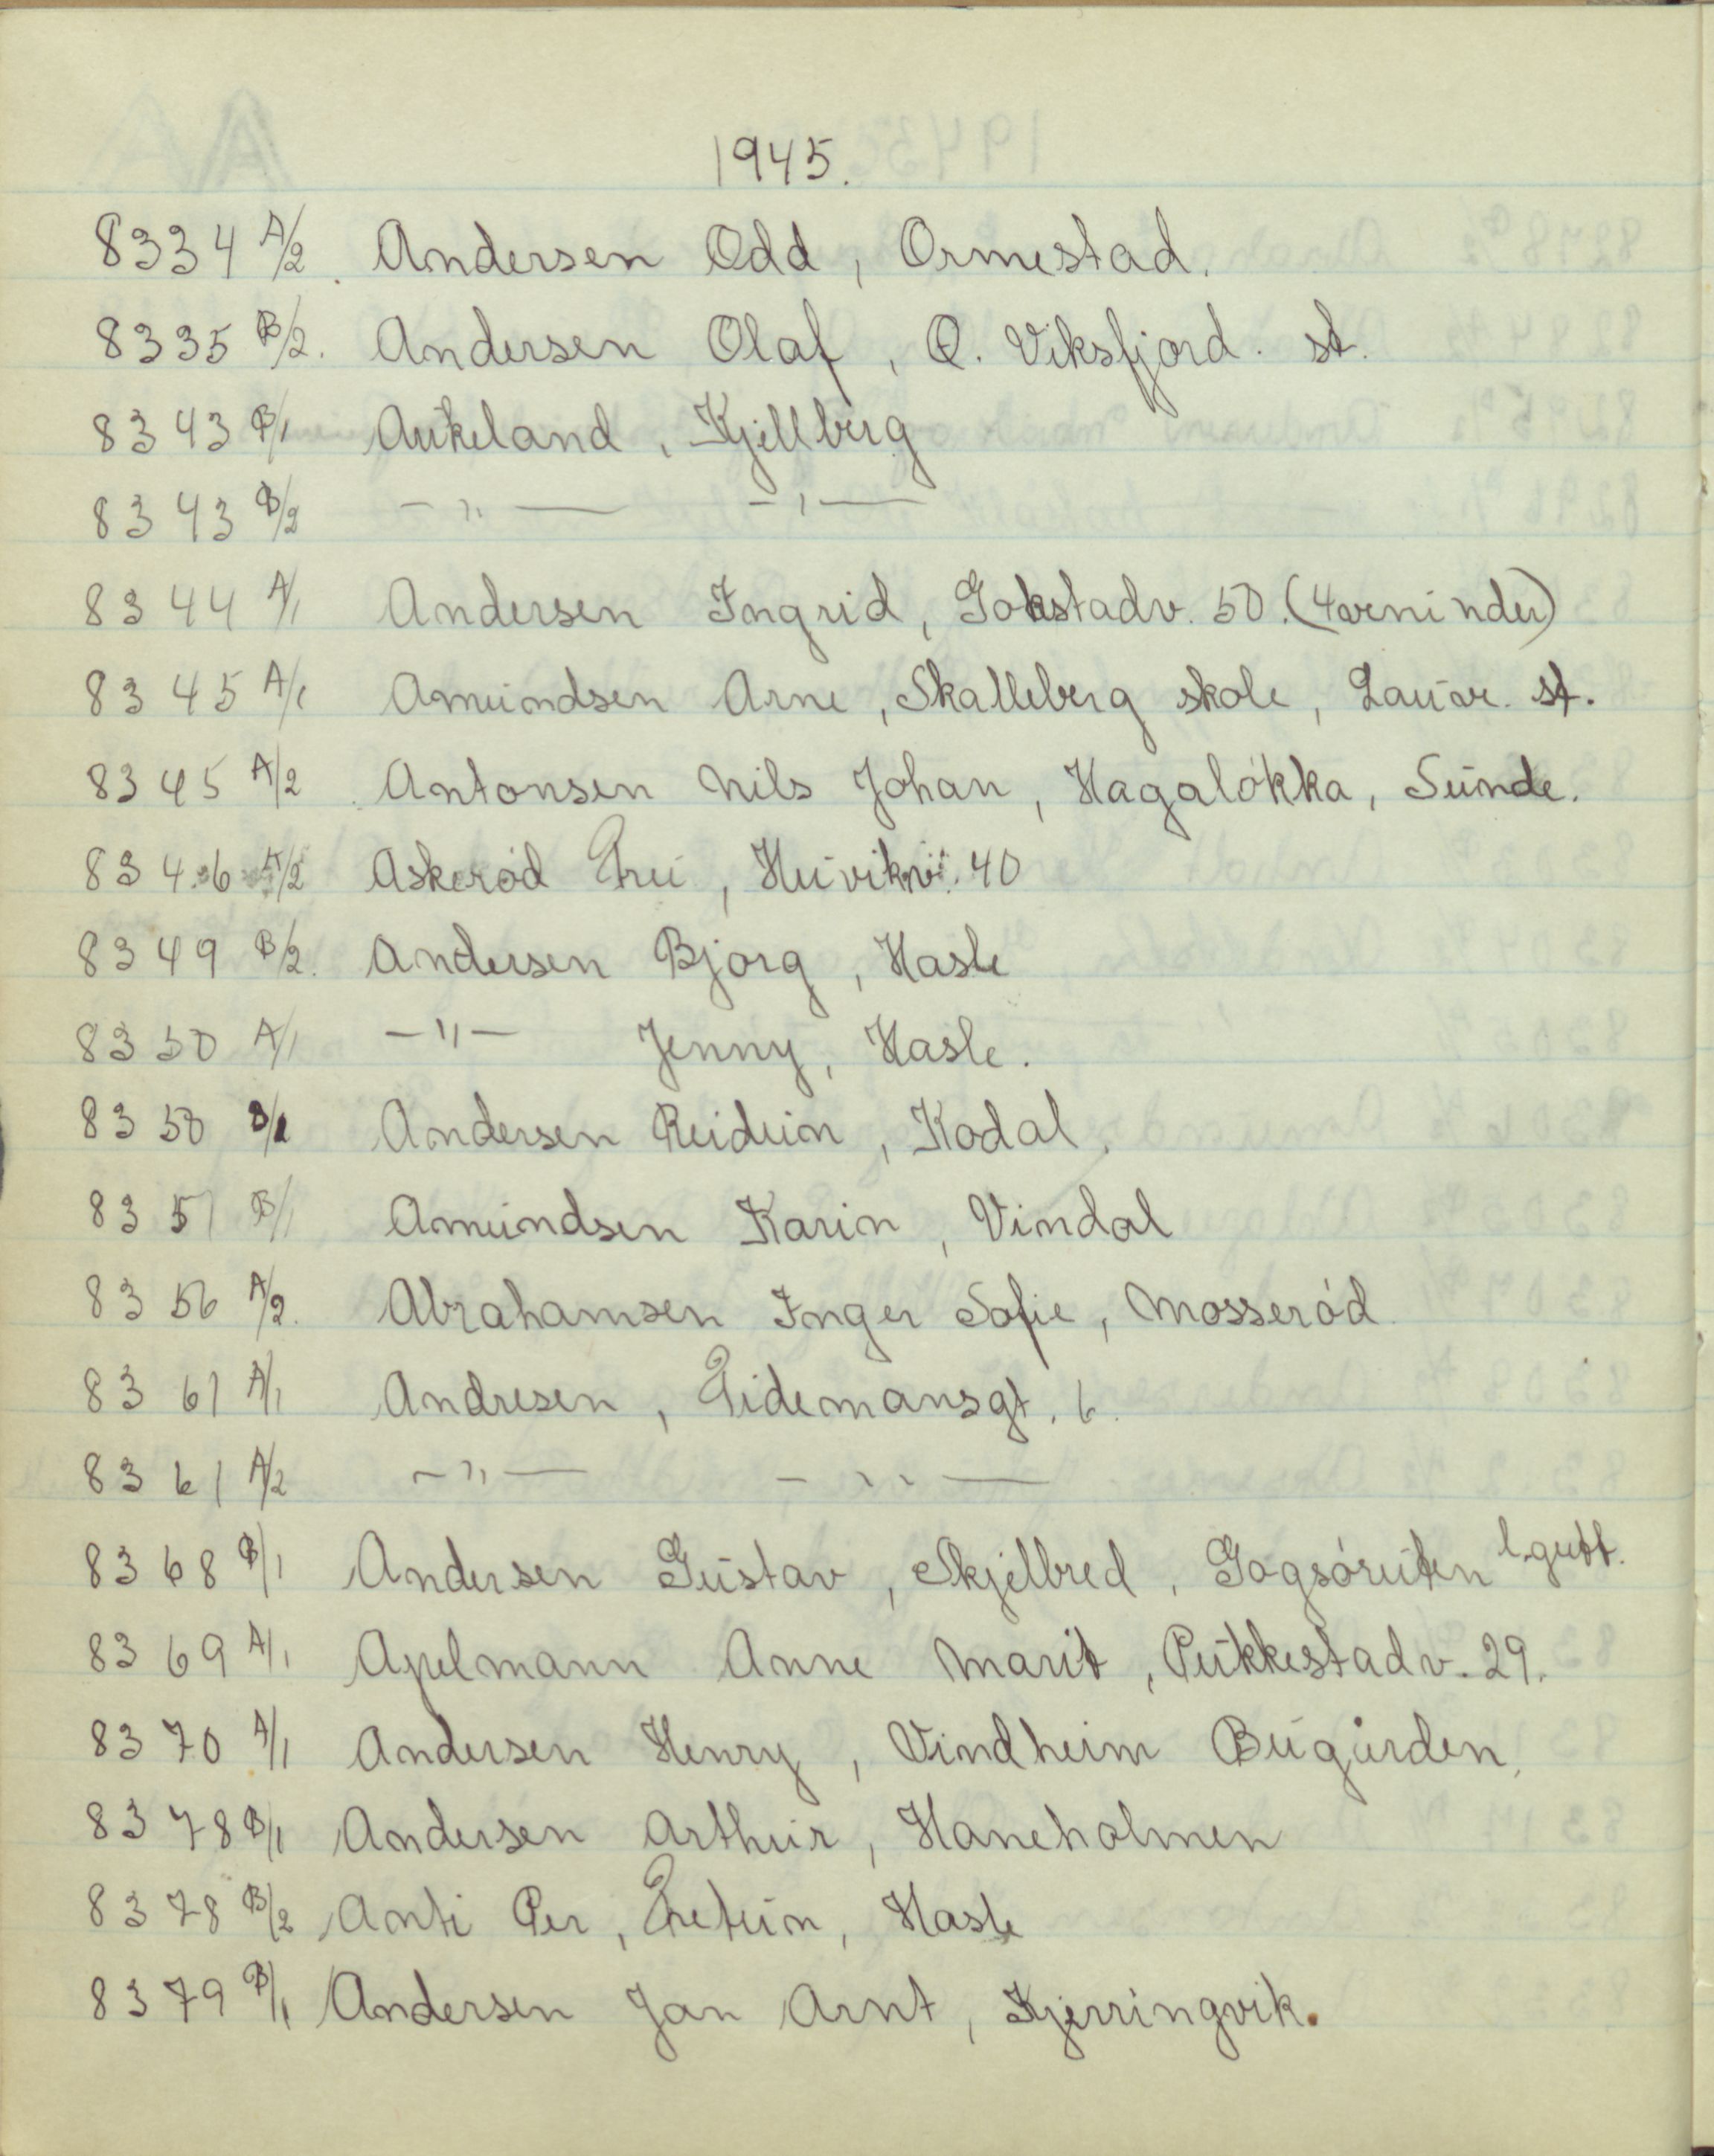 1945.
8334 A/2. Andersen Odd, Ormestad.
8335 B/2. Andersen Olaf, Ø. Viksfjord. st.
8343 B/1 Aukeland, Kjellberg
8343 B/2 -"- -"-
8344 A/1 Andersen Ingrid, Gokstadv. 50. (4 veninder)
8345 A/1 Amundsen Arne, Skalleberg skole, Lauve. st.
8345 A/2 Antonsen Nils Johan, Hagaløkka, Sunde.
8346 A/2 Askerød Fru, Huvikv. 40
8349 B/2. Andersen Bjørg, Hasle
8350 A/1 -"- Jenny, Hasle.
8350 B/1 Andersen Reidun, Kodal.
8351 B/1 Amundsen Karin, Vindal
8356 A/2. Abrahamsen Inger Sofie, Mosserød
8361 A/1 Andresen, Tidemansgt. 6.
8361 A/2 -"- -"-
8368 B/1 Andersen Gustav, Skjellbred, Gogsøruten l.gutt.
8369 A/1 Apelmann Anne Marit, Pukkestadv. 29.
8370 A/1 Andersen Henry, Vindheim Bugården.
8378 B/1 Andersen Arthur, Haneholmen
8378 B/2 Anti Per, Fretun, Hasle
8379 B/1 Andersen Jan Arnt, Kjerringvik.